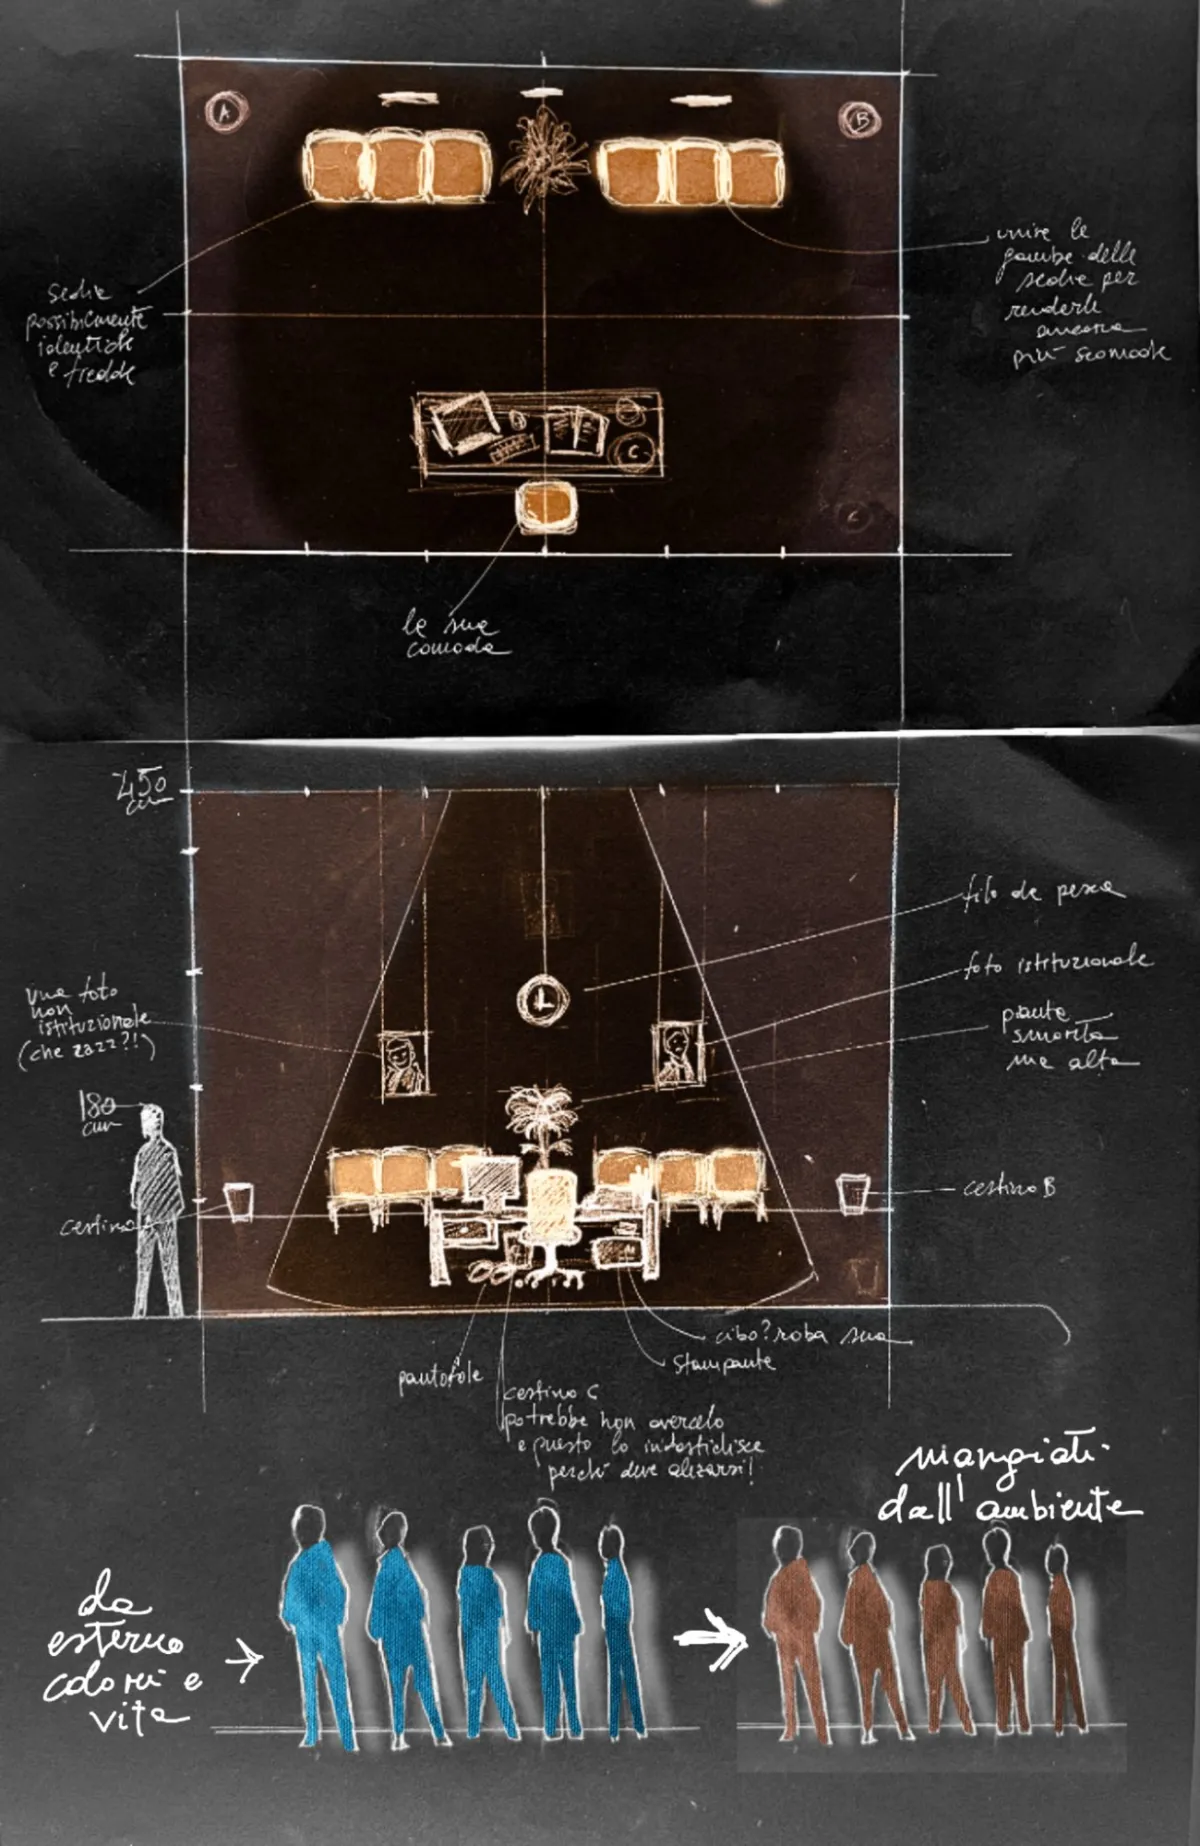 A
B
sedie
possibilmente
identiche
e fredde
unire le
gambe delle
sedie per
renderle
ancora
più scomode
C
C
la sua
comoda
450
cm
filo da pesca
foto istituzionale
pianta
smorta
ma alta
una foto
non
istituzionale
(che zazz?!)
180
cm
cestino A
cestino B
cibo? roba sua
stampante
pantofole
cestino C
potrebbe non avercelo
e questo lo infastidisce
perché deve alzarsi!
mangiati
dall'ambiente
da
esterno
colori e
vita